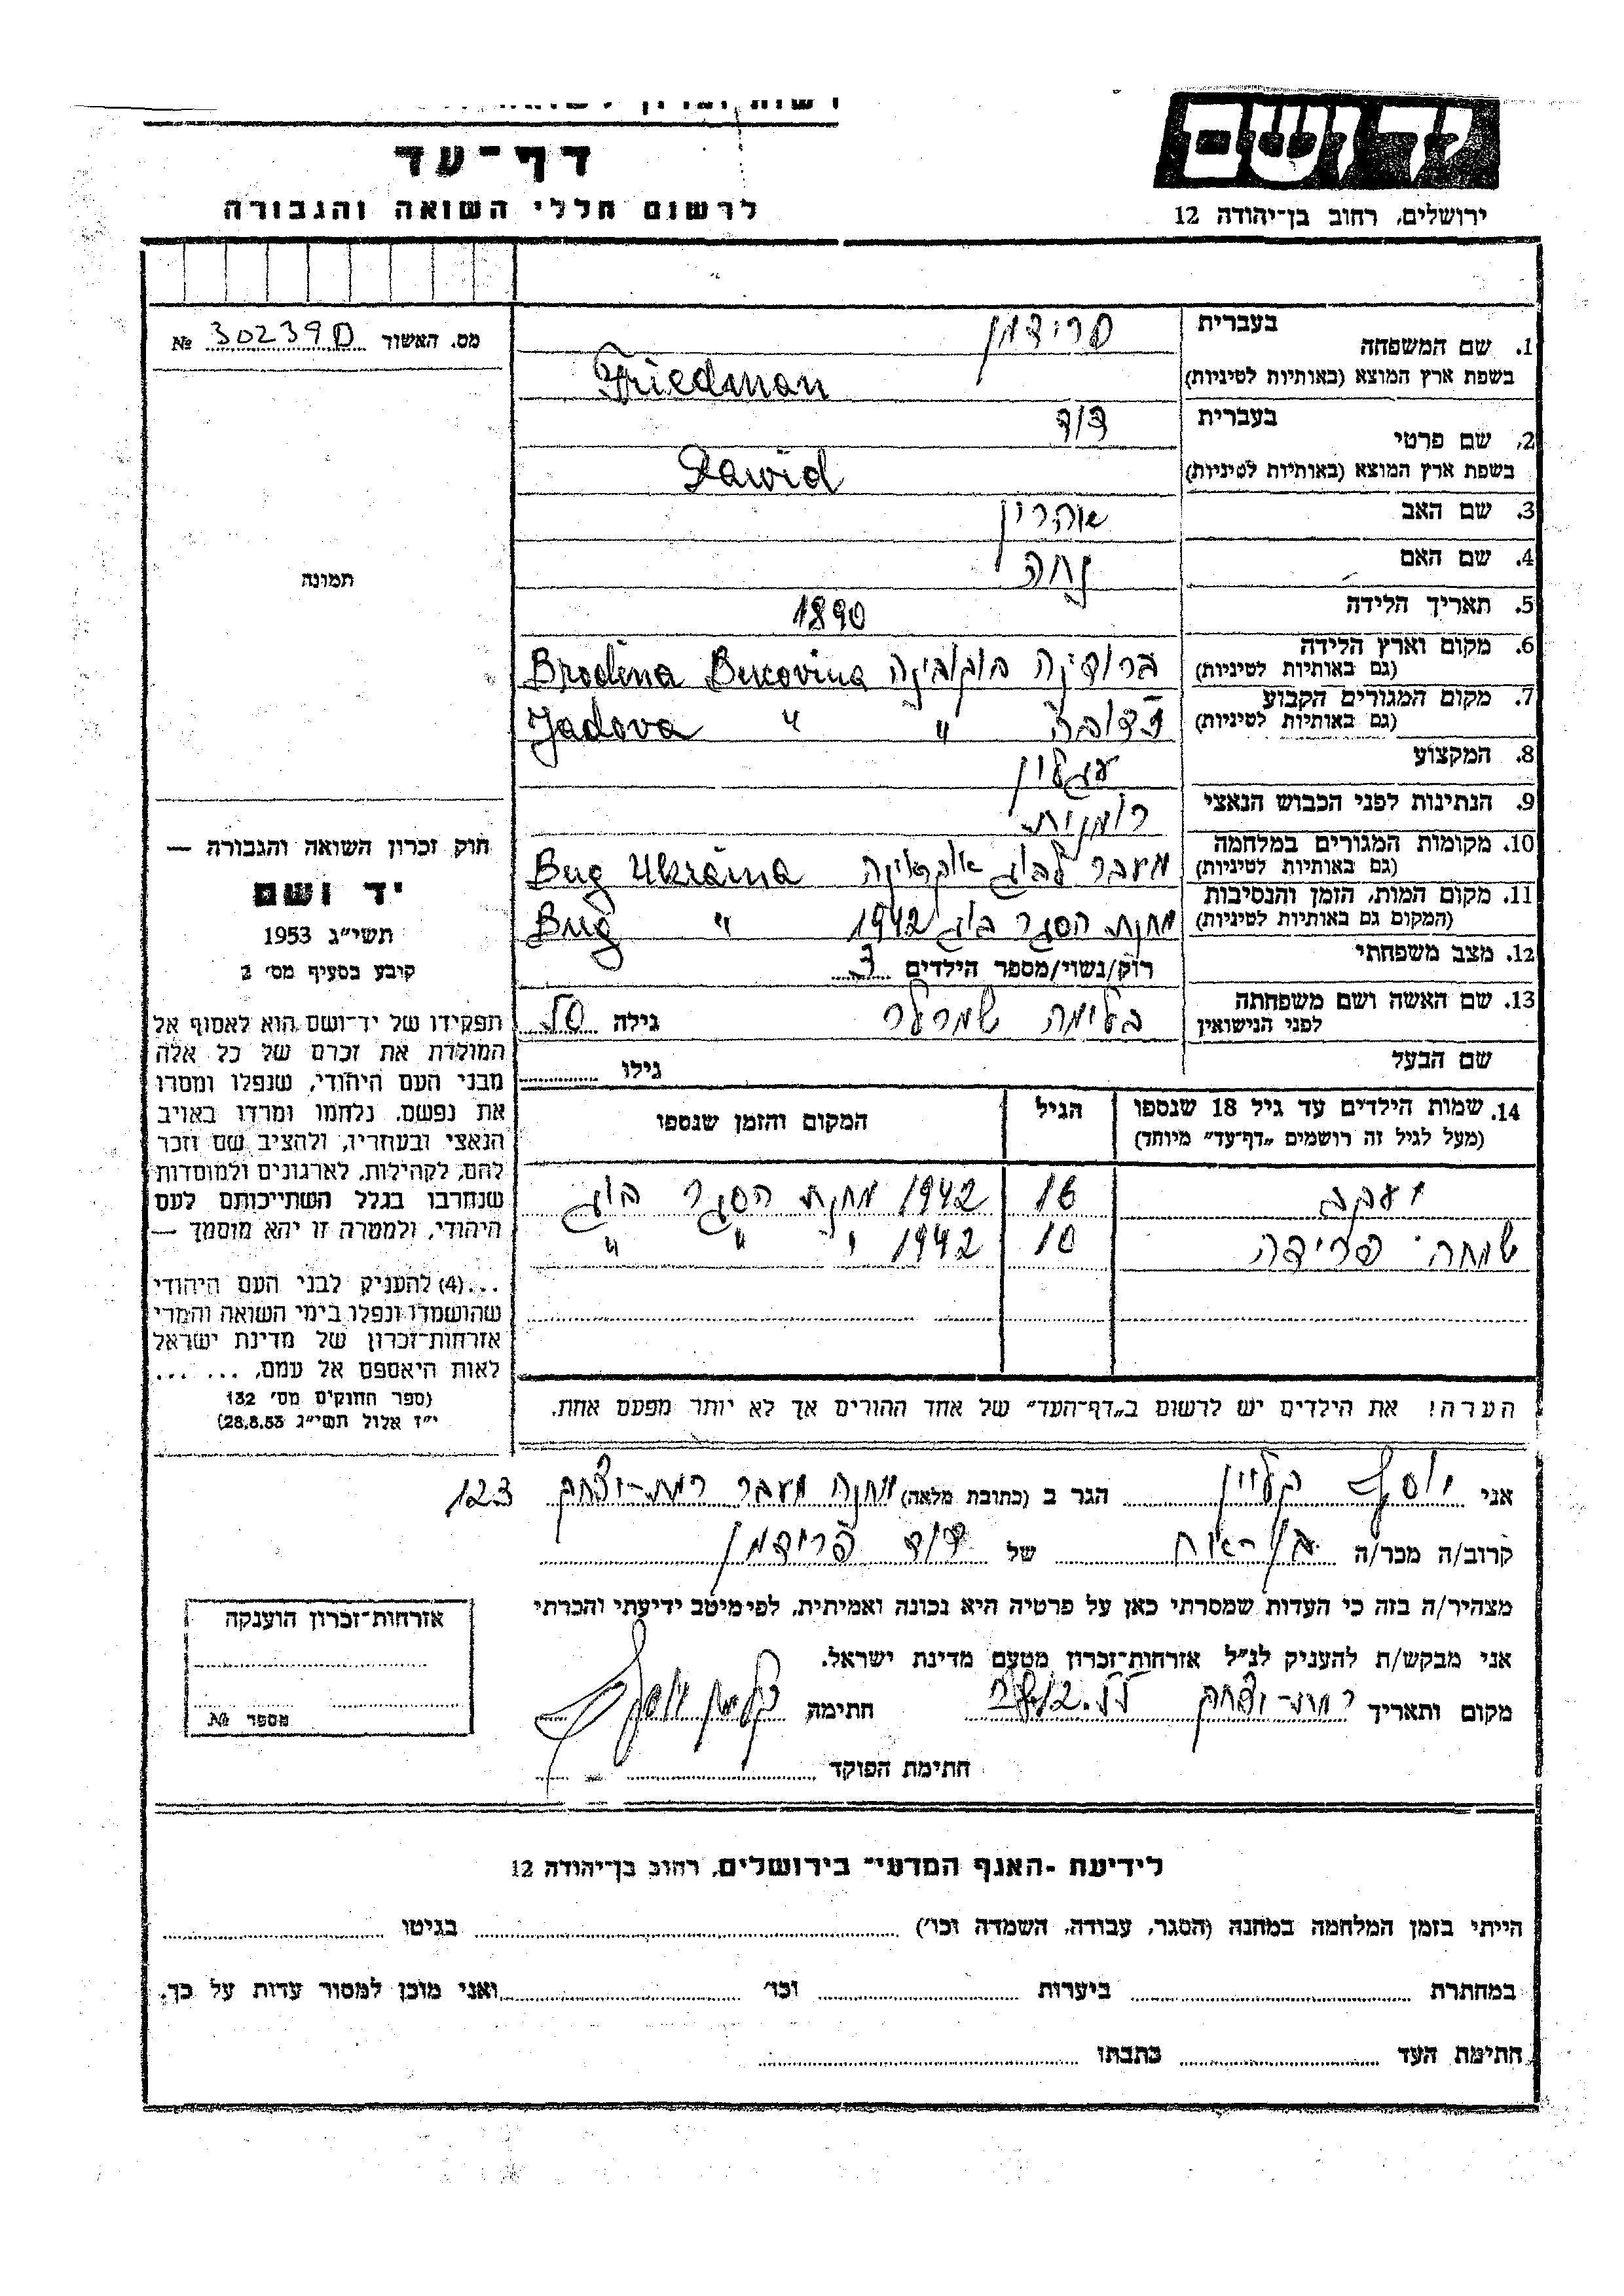 יד ושם
ירושלים, רחוב בן־יהודה 12
דף־עד
לרשום חללי השואה והגבורה
מס. האשור № 302390
תמונה
1. שם המשפחה
בעברית פרידמן
בשפת ארץ המוצא (באותיות לטיניות) Friedman
2. שם פרטי
בעברית דוד
בשפת ארץ המוצא (באותיות לטיניות) Dawid
3. שם האב אהרון
4. שם האם נחה
5. תאריך הלידה 1890
6. מקום וארץ הלידה (גם באותיות לטיניות) ברודינה בוקובינה Brodina Bucovina
7. מקום המגורים הקבוע (גם באותיות לטיניות) ידובה " Jadova "
8. המקצוע עגלון
9. הנתינות לפני הכבוש הנאצי רומנית
10. מקומות המגורים במלחמה (גם באותיות לטיניות) מעבר לבוג אוקראינה Bug Ukraina
11. מקום המות, הזמן והנסיבות (המקום גם באותיות לטיניות) מחנת הסגר בוג 1942 Bug "
12. מצב משפחתי רוק/נשוי/מספר הילדים 3
13. שם האשה ושם משפחתה לפני הנישואין בלימה שמרלר גילה 50
שם הבעל גילו
14. שמות הילדים עד גיל 18 שנספו (מעל לגיל זה רושמים „דף־עד” מיוחד) הגיל המקום והזמן שנספו
יעקב 16 1942 מחנת הסגר בוג
שמחה פרידה 10 1942 " " "
הערה! את הילדים יש לרשום ב„דף־העד” של אחד ההורים אך לא יותר מפעם אחת.
חוק זכרון השואה והגבורה —
יד ושם
תשי״ג 1953
קובע בסעיף מס׳ 2
תפקידו של יד־ושם הוא לאסוף אל
המולדת את זכרם של כל אלה
מבני העם היהודי, שנפלו ומסרו
את נפשם, נלחמו ומרדו באויב
הנאצי ובעוזריו, ולהציב שם וזכר
להם, לקהילות, לארגונים ולמוסדות
שנחרבו בגלל השתייכותם לעם
היהודי, ולמטרה זו יהא מוסמך —
...(4) להעניק לבני העם היהודי
שהושמדו ונפלו בימי השואה והמרי
אזרחות־זכרון של מדינת ישראל
לאות היאספם אל עמם. ... ...
(ספר החוקים מס׳ 132
י״ז אלול תשי״ג 28.8.53)
אני יוסף קלמן הגר ב (כתובת מלאה) מחנה מעבר רמת-יצחק 123
קרוב/ה מכר/ה בן־אח של דוד פרידמן
מצהיר/ה בזה כי העדות שמסרתי כאן על פרטיה היא נכונה ואמיתית, לפי מיטב ידיעתי והכרתי
אני מבקש/ת להעניק לנ״ל אזרחות־זכרון מטעם מדינת ישראל.
מקום ותאריך רמת-יצחק חתימה קלמן יוסף
חתימת הפוקד
אזרחות־זכרון הוענקה
מספר №
לידיעת ־האגף המדעי״ בירושלים, רחוב בן־יהודה 12
הייתי בזמן המלחמה במחנה (הסגר, עבודה, השמדה וכו׳) בגיטו
במחתרת ביערות וכו׳ ואני מוכן למסור עדות על כך.
חתימת העד כתבתו